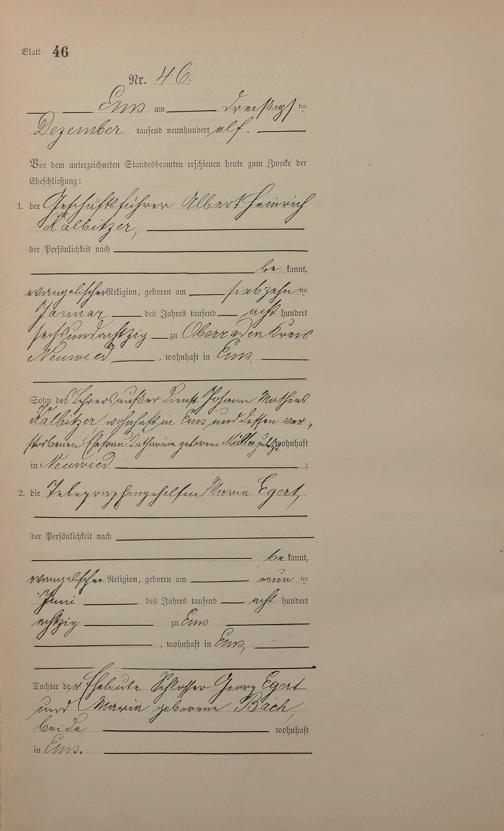 Blatt 46
Nr. 46.
Ems am dreißigsten
Dezember tausend neunhundert elf.
Vor dem unterzeichneten Standesbeamten erschienen heute zum Zwecke der
Eheschließung:
1. der Geschäftsführer Albert Heinrich
Kalbitzer,
der Persönlichkeit nach
be kannt,
evangelischer Religion, geboren am siebzehnten
Januar des Jahres tausend acht hundert
sechsundachtzig zu Oberraden Kreis
Neuwied, wohnhaft in Ems,
Sohn des Lehrers außer Dienst Johann Mathias
Kalbitzer, wohnhaft in Ems, und dessen ver-
storbenen Ehefrau Katharina geborene Müller zuletzt wohnhaft
in Neuwied ;
2. die Telegraphengehilfin Maria Egert,
der Persönlichkeit nach
be kannt,
evangelischer Religion, geboren am neunten
Juni des Jahres tausend acht hundert
achtzig zu Ems
, wohnhaft in Ems,
Tochter der Eheleute Schlosser Georg Egert
und Maria geborene Bach,
beide wohnhaft
in Ems.